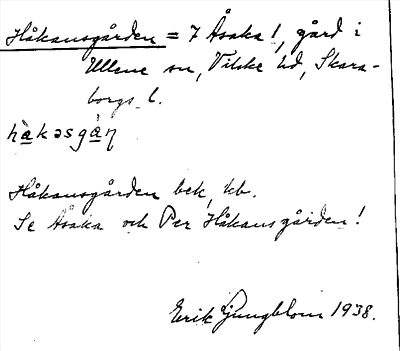 Håkansgården = 7 Åsaka 1, gård i
Ullene sn, Vilske hd, Skara-
borgs l.
hàkəsgàɳ
Håkansgården bek, kb.
Se Åsaka och Per Håkansgården!
Erik Ljungblom 1938.